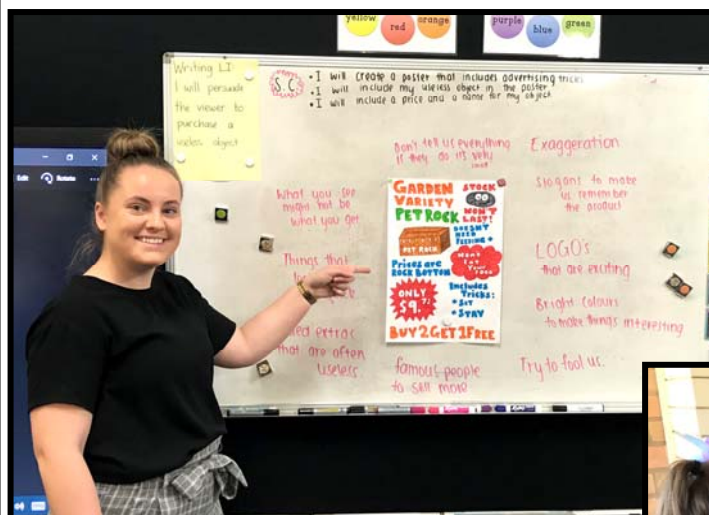 yellow
red
orange
purple
blue
green
Writing LI:
I will persuade
the viewer to
purchase a
useless object
S.C
• I will create a poster that includes advertising tricks
• I will include my useless object in the poster
• I will include a price and a name for my object
Edit
Rotate
Don't tell us everything
is they do it's very
Exaggeration
What you see
might not be
what you get
Slogans to make
us remember
the product
Things that
LOGO's
that are exciting
Bright colours
to make things interesting
extras
that are often
useless
famous people
to sell more
Try to fool us.
GARDEN
VARIETY
PET ROCK
STOCK
WON'T
LAST!
PET ROCK
DOESN'T
NEED
FEEDING +
WON'T
EAT
YOUR
Prices are
ROCK BOTTOM
ONLY
$9.
Includes
Tricks:
• SIT
• STAY
BUY 2 GET 1 FREE